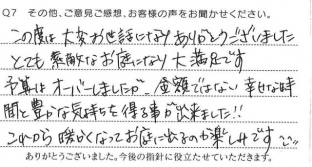 Q7 その他、ご意見ご感想、お客様の声をお聞かせください。
この度は大変お世話になりありがとうございました
とても素敵なお庭になり大満足です
予算はオーバーしましたが、金額ではない幸せな時
間と豊かな気持ちを得る事が出来ました!!
これから暖かくなってお庭に出るのが楽しみです
ありがとうございました。今後の指針に役立たせていただきます。